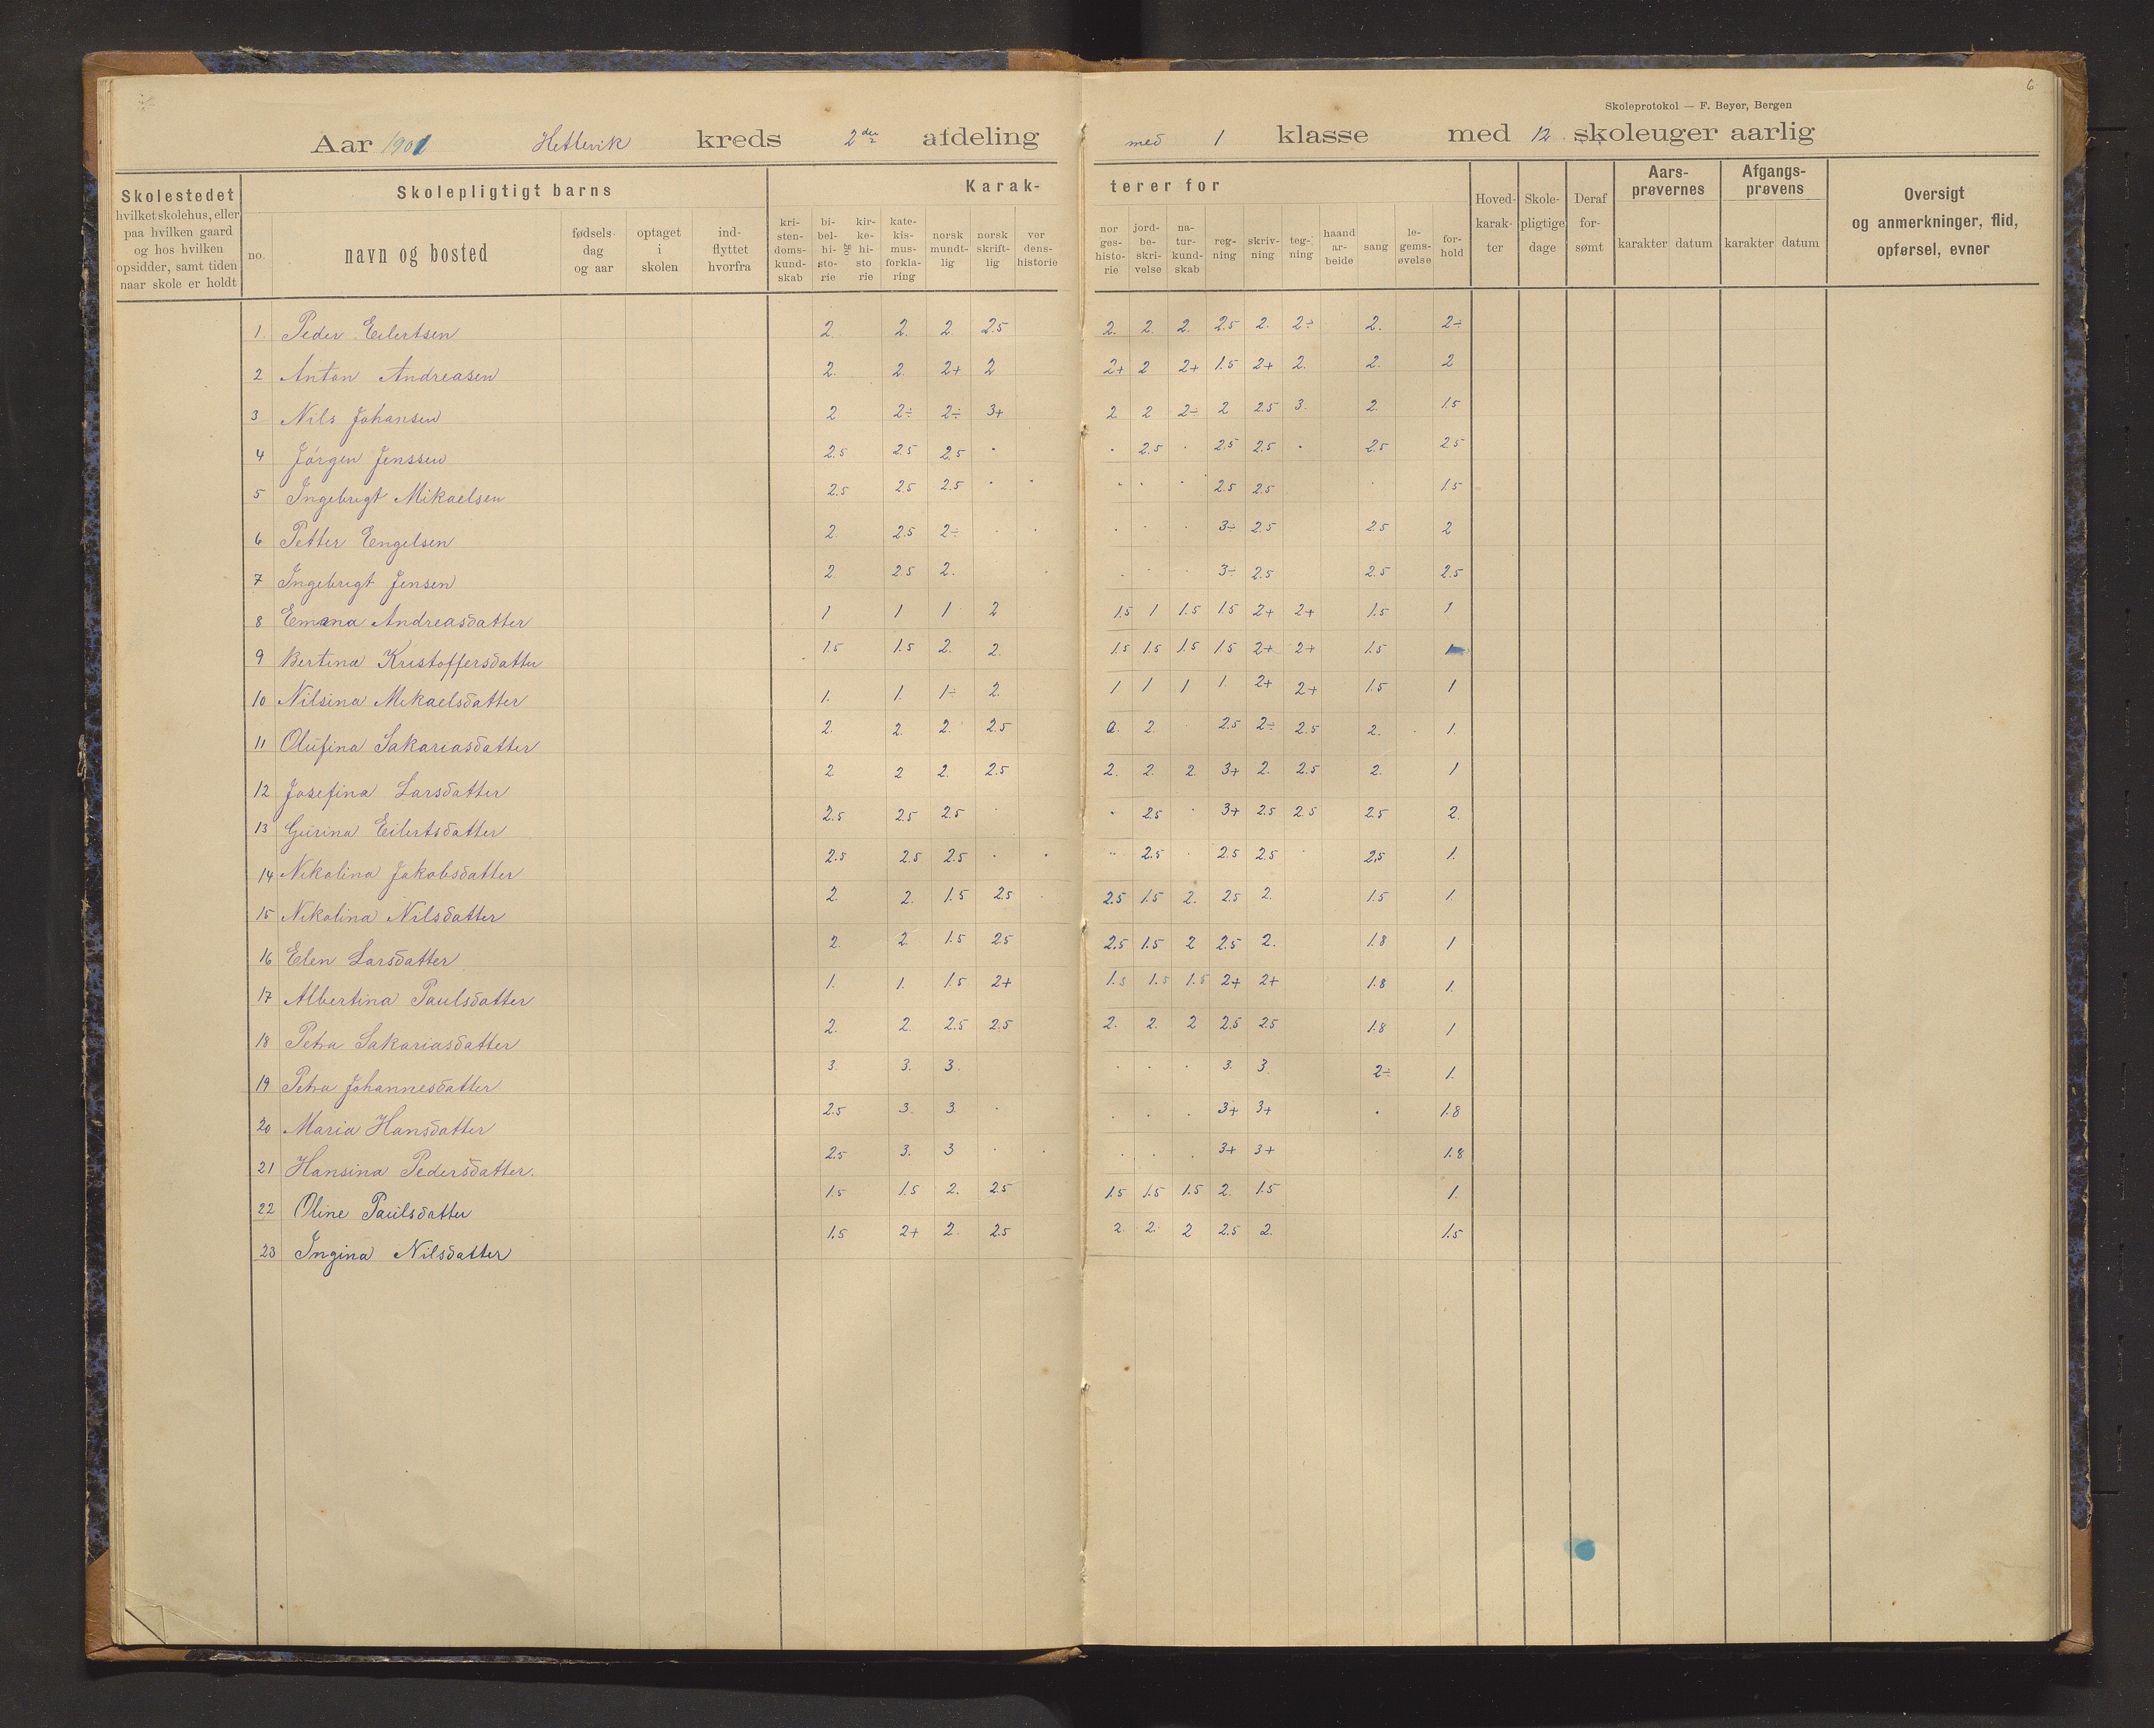 6
Skoleprotokol — F. Beyer, Bergen
Aar 1901 Hetlevik kreds 2den afdeling med 1 klasse med 12 skoleuger aarlig
Skolestedet hvilket skolehus, eller paa hvilken gaard og hos hvilken opsidder, samt tiden naar skole er holdt
Skolepligtigt barns
no. navn og bosted fødsels dag og aar optaget i skolen ind-flyttet hvorfra
Karak- terer for
kri-sten-doms-kund-skab bi-bel-hi-sto-rie og kir-ke-hi-sto rie kate-kis-mus-forkla-ring norsk mundt-lig norsk skrift-lig ver dens-historie
nor ges-histo-rie jord-be-skri-velse na-tur-kund-skab reg-ning skriv-ning teg-ning haand ar-beide sang le-gems-øvelse for-hold
Hoved-karak-ter Skole-pligtige dage Deraf for-sømt
Aars-prøvernes karakter datum
Afgangs-prøvens karakter datum
Oversigt og anmerkninger, flid, opførsel, evner
1. Peder Eilertsen 2. 2. 2. 2.5 2. 2. 2. 2.5 2. 2÷ 2. 2÷
2 Anton Andreasen 2. 2. 2+ 2 2+ 2 2+ 1.5 2+ 2. 2. 2
3 Nils Johansen 2 2÷ 2÷ 3+ 2 2 2÷ 2 2.5 3. 2. 1.5
4 Jørgen Jenssen 2.5 2.5 2.5 " " 2.5 " 2.5 2.5 " 2.5 2.5
5 Ingebrigt Mikaelsen 2.5 2.5 2.5 " " " " " 2.5 2.5 1.5
6 Petter Engelsen 2. 2.5 2÷ 3÷ 2.5 2.5 2
7 Ingebrigt Jensen 2 2.5 2. 3÷ 2.5 2.5 2.5
8 Emma Andreasdatter 1 1 1 2 1.5 1 1.5 1.5 2+ 2+ 1.5 1
9 Bertina Kristoffersdatter 1.5 1.5 2. 2. 1.5 1.5 1.5 1.5 2+ 2+ 1.5 1
10 Nilsina Mikaelsdatter 1. 1. 1÷ 2. 1 1 1 1. 2+ 2+ 1.5 1
11 Olufina Sakariasdatter 2. 2. 2. 2.5 2. 2. 2.5 2÷ 2.5 2. 1.
12 Josefina Larsdatter 2 2 2. 2.5 2. 2. 2. 3+ 2. 2.5 2. 1
13 Gurina Eilertsdatter 2.5 2.5 2.5 " " 2.5 " 3+ 2.5 2.5 2.5 2.
14 Nikolina Jakobsdatter 2.5 2.5 2.5 " " " 2.5 " 2.5 2.5 " 2.5 1.
15 Nikolina Nilsdatter 2. 2. 1.5 2.5 2.5 1.5 2. 2.5 2. 1.5 1.
16 Elen Larsdatter 2. 2. 1.5 2.5 2.5 1.5 2 2.5 2. 1.8 1
17 Albertina Paulsdatter 1. 1. 1.5 2+ 1.5 1.5 1.5 2+ 2+ 1.8 1.
18 Petra Sakariasdatter 2. 2. 2.5 2.5 2. 2. 2 2.5 2.5 1.8 1
19 Petra Johannesdatter 3. 3. 3. 3. 3. 2÷ 1.
20 Maria Hansdatter 2.5 3. 3. 3+ 3+ 1.8
21 Hansina Pedersdatter. 2.5 3. 3 3+ 3+ 1.8
22 Oline Paulsdatter 1.5 1.5 2. 2.5 1.5 1.5 1.5 2. 1.5 1.
23 Ingina Nilsdatter 1.5 2+ 2. 2.5 2. 2. 2 2.5 2. 1.5